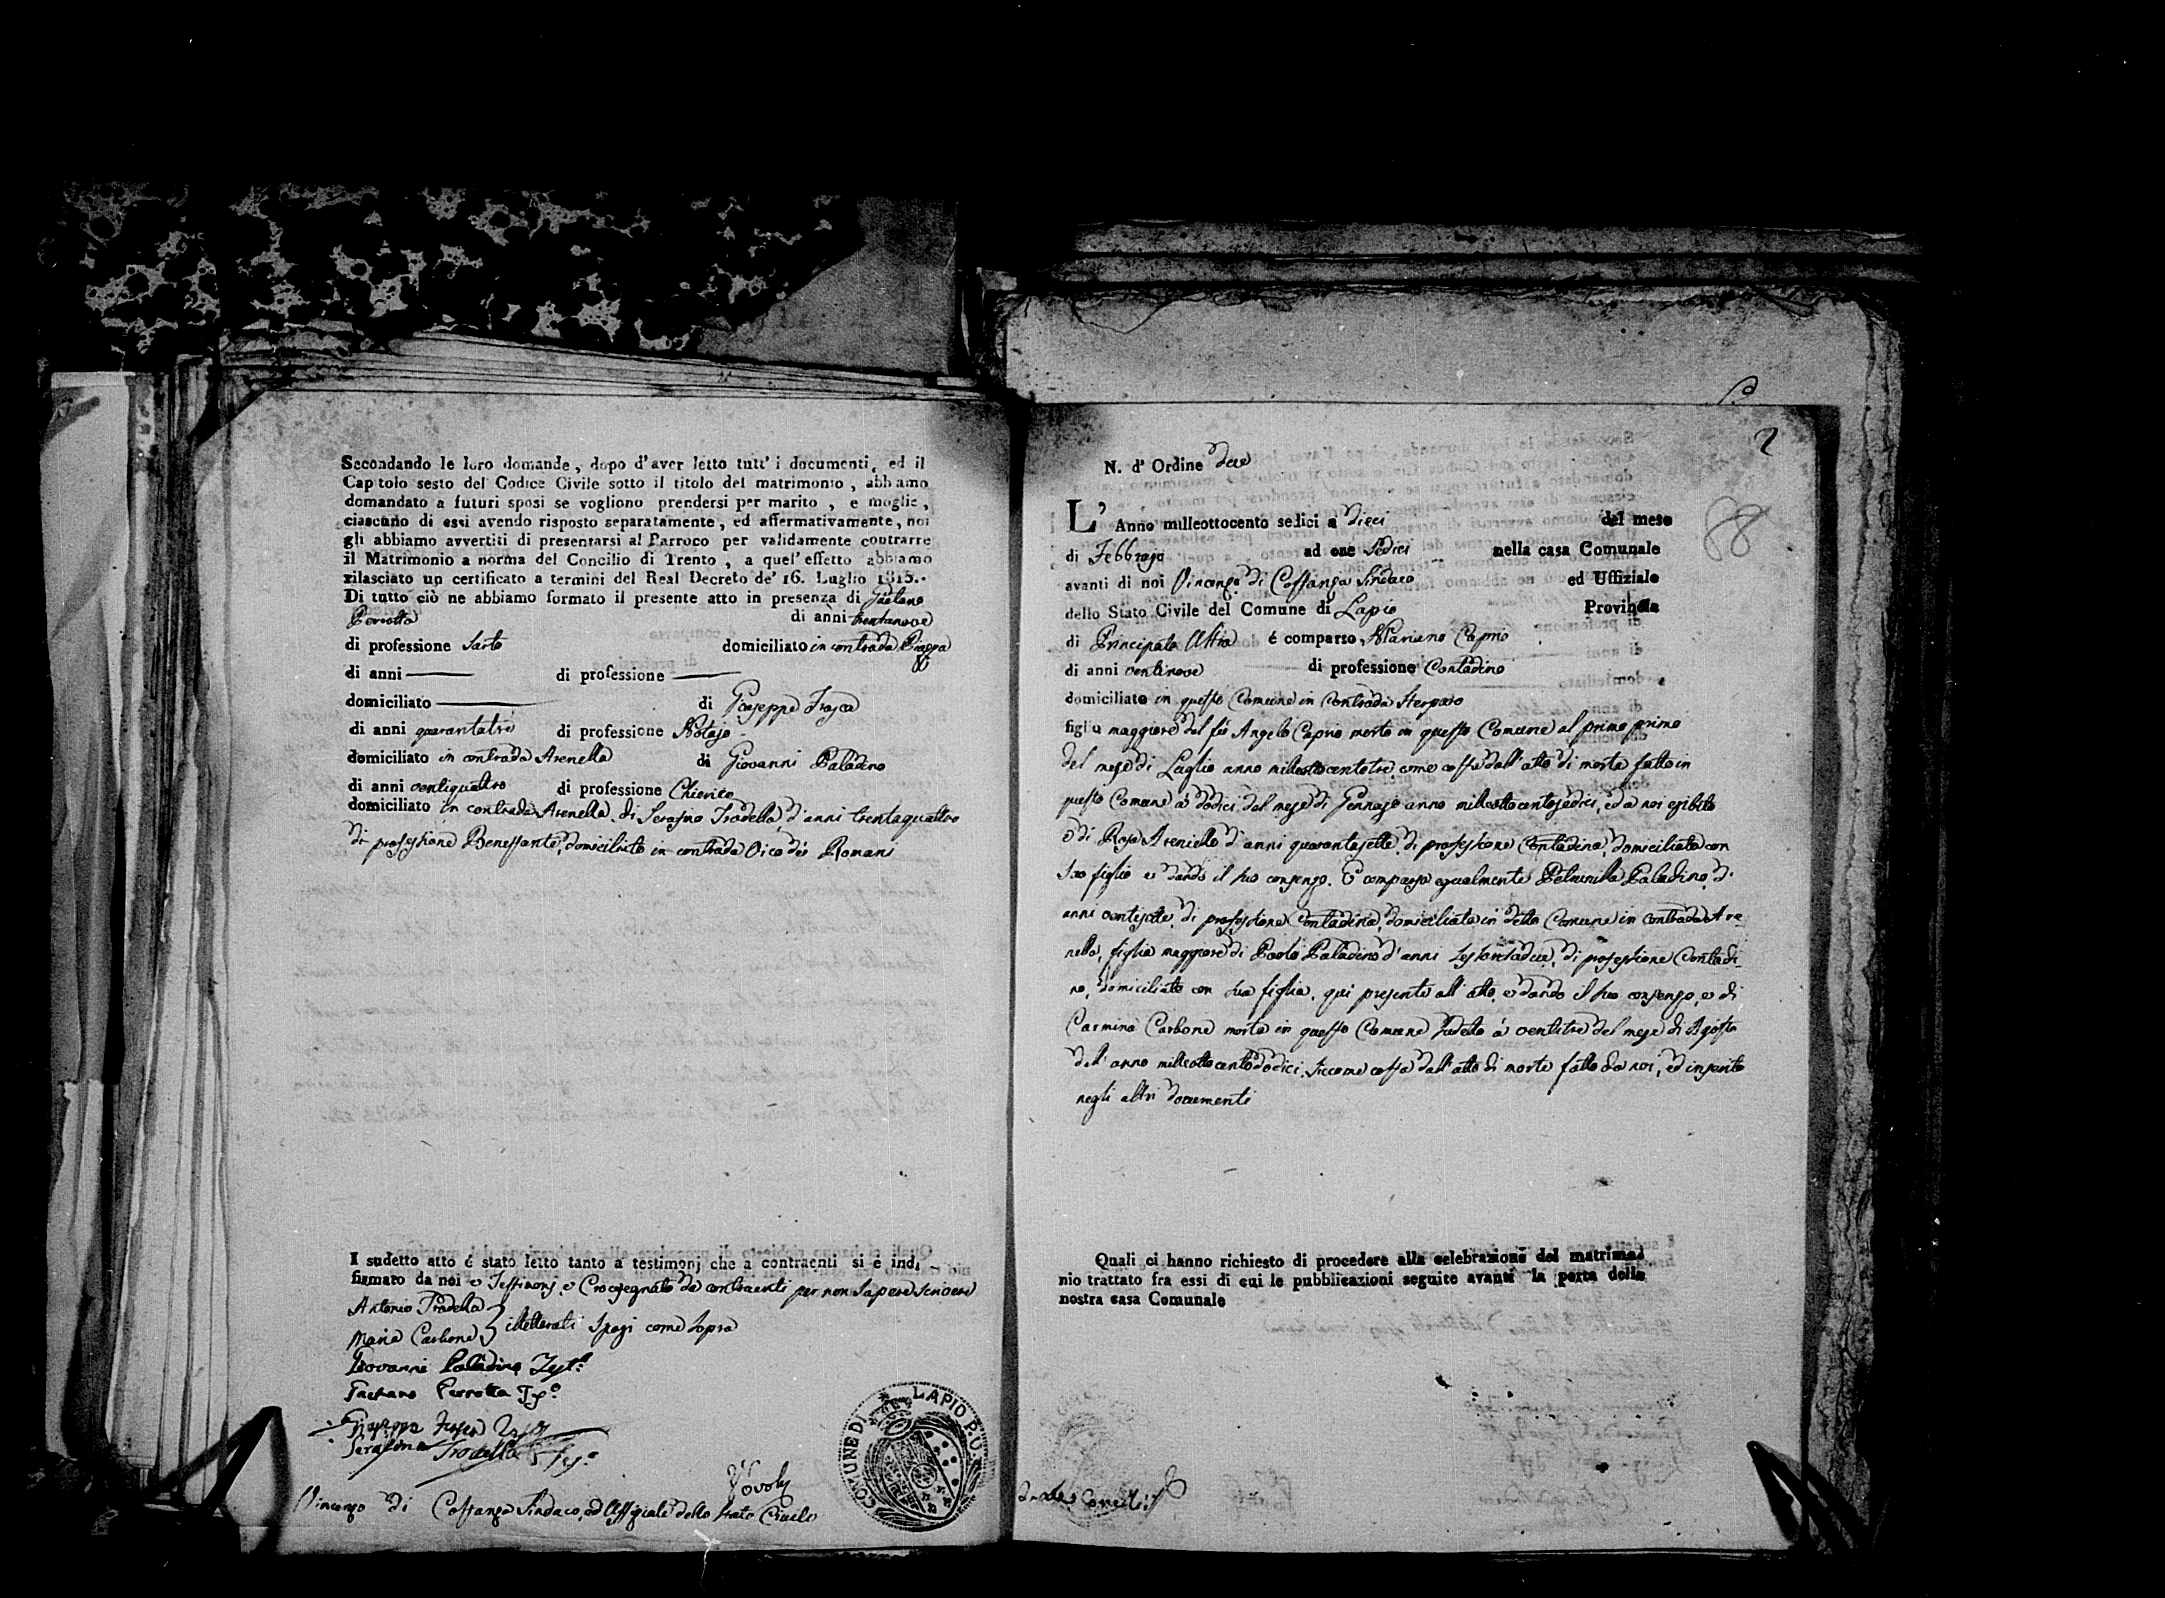 Secondando le loro domande, dopo d'aver letto tutt' i documenti, ed il
Capitolo sesto del Codice Civile sotto il titolo del matrimonio, abbiamo
domandato a futuri sposi se vogliono prendersi per marito, e moglie,
ciascuno di essi avendo risposto separatamente, ed affermativamente, noi
gli abbiamo avvertiti di presentarsi al Parroco per validamente contrarre
il Matrimonio a norma del Concilio di Trento, a quel' effetto abbiamo
rilasciato un certificato a termini del Real Decreto de' 16. Luglio 1815.
Di tutto ciò ne abbiamo formato il presente atto in presenza di Gaetano
Perrotta di anni trentanove
di professione Sarto domiciliato in contrada Piazza
di anni di professione
domiciliato di Giuseppe Frasca
di anni quarantatrè di professione Notajo
domiciliato in contrada Arenella di Giovanni Paladino
di anni ventiquattro di professione Chierico
domiciliato in contrada Arenella, di Serafino Trodella, d'anni trentaquattro
di professione Benestante, domiciliato in contrada Vico dei Romani
I sudetto atto é stato letto tanto a testimonj che a contraenti si é indi
firmato da noi e Testimonj, e Crocesegnato da contraenti per non sapere scrivere
Antonio Trodella
Maria Carbone illetterati Sposi come sopra
Giovanni Paladino Test.
Gaetano Perrotta
Giuseppe Frasca
Serafino Trodella
Vincenzo di Costanzo Sindaco, ed Uffiziale dello Stato Civile
COMUNE DI LAPIO P. U.
2
N. d' Ordine due
88
L' Anno milleottocento sedici a dieci del mese
di Febbrajo ad ore sedici nella casa Comunale
avanti di noi Vincenzo di Costanzo Sindaco ed Uffiziale
dello Stato Civile del Comune di Lapio Provincia
di Principato Ultra é comparso Mariano Caprio
di anni ventinove di professione Contadino
domiciliato in questo Comune in Contrada
figlio maggiore del fù Angelo Caprio morto in questo Comune al primo primo
del mese di Luglio anno milleottocentotre, come costa dall'atto di morte fatto in
questo Comune à dodici del mese di Gennajo anno milleottocentosedici, ed a noi esibito
e di Rosa Areniello d'anni quarantasette, di professione Contadina, domiciliata con
suo figlio e dando il suo consenso. È comparsa egualmente Petronilla Paladino, di
anni ventisette, di professione Contadina, domiciliata in detto Comune in contrada Are
nella, figlia maggiore di Paolo Paladino d'anni sessantadue, di professione Contadi
no, domiciliato con sua figlia, qui presente all'atto, e dando il suo consenso, e di
Carmina Carbone morta in questo Comune sudetto à ventitre del mese di Agosto
dell'anno milleottocentododici, siccome costa dall'atto di morte fatto da noi, ed inserito
negli altri documenti
Quali ci hanno richiesto di procedere alla celebrazione del matrimo
nio trattato fra essi di cui le pubblicazioni seguite avanti la porta della
nostra casa Comunale